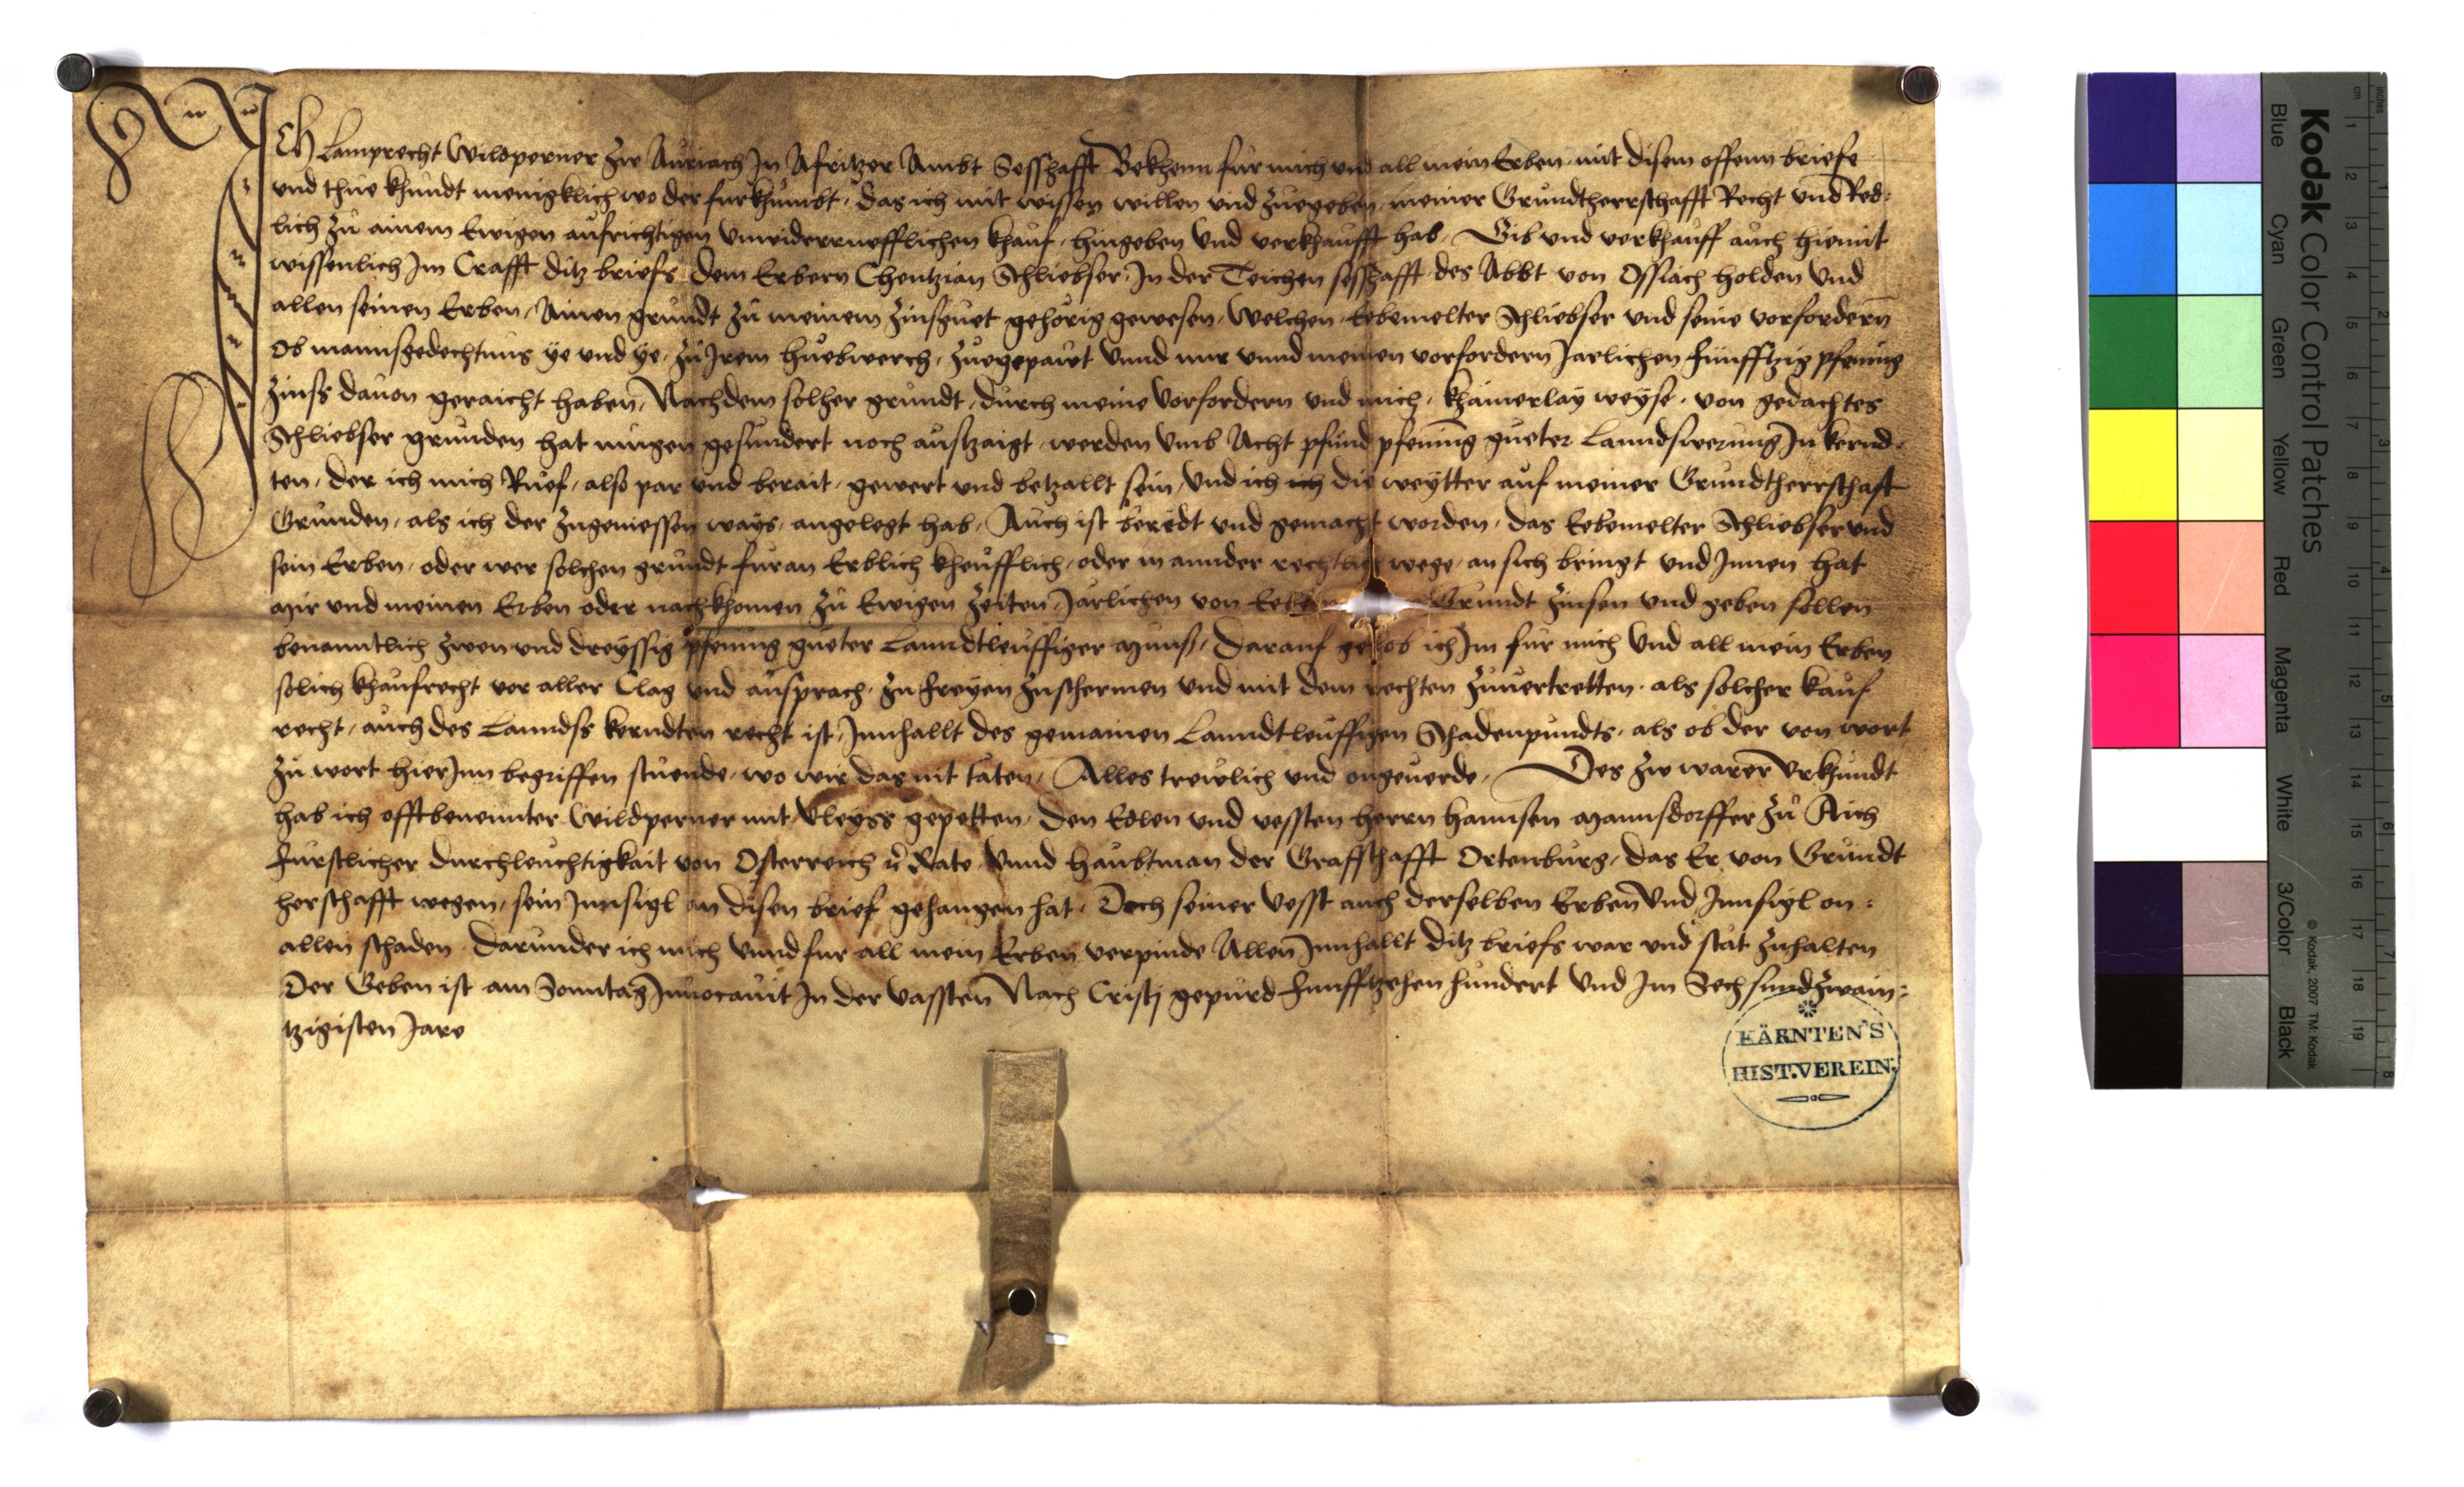 Ich Lamprecht Wildperner zw Auriach In Afritzer Ambt Sesshafft Bekhenn fur mich und all mein Erben mit disem offenn briefe
und thue khundt menigklich wo der furkhumbt, das ich mit wissen willen und zuegeben meiner Grundtherrschafft Recht und Red:
lich zu ainem Ewigen aufrichtigen unwiderruefflichen khauf, hingeben und verkhaufft hab, Gib und verkhauff auch hiemit
wissenlich Im Crafft ditz briefs dem Erbern Chentzian Schliebser In der Teichen sesshafft des Abbt von Ossiach holden und
allen seinen Erben, Ainen grundt zu meinem Zinsguet gehörig gewesen, Welchen Eebemelter Schliebser und seine vorfordern
Ob mannsgedechtnus ye und ye, zu Irem huebwerch, zuegepawt unnd mir unnd meinen vorfordern Jarlichen funfftzig pfening
Zinss dauon geraicht haben, Nachdem solher grundt, durch meine vorfordern und mich, khainerlay weyse, von gedachtes
Schliebser grunden hat mugen gesundert noch ausszaigt werden umb Acht pfund pfening gueter Lanndswerung In kernd:
ten, der ich mich Ruef, also par und berait, gewert und betzallt sein, und ich ich die weytter auf meiner Grundtherrschaft
Grunden, als ich der zugeniessen ways, angelegt hab, Auch ist beredt und gemacht worden, das Eebemelter Schliebser und
sein Erben, oder wer solchen grundt furan Erblich kheufflich, oder in annder rechtlich wege, an sich bringt und Innen hat
mir und meinen Erben oder nachkhomen zu Ewigen Zeiten, Jarlichen von Grundt zinsen und geben sollen
benanntlich zwen und dreyssig pfening gueter Lanndtleuffiger munss, Darauf gelob ich Im fur mich und all mein Erben
solich khaufrecht vor aller Clag und ansprach, zu freyen zuschermen und mit dem rechten zuuertretten, als solcher kauf
recht, auch des Lannds kerndten recht ist, Innhallt des gemainen Lanndtleuffigen Schadenpundts, als ob der von wort
zu wort hierInn begriffen stuende, wo wir das nit taten, Alles trewlich und ongeuerde, Des zw warer Urkhundt
hab ich offtbenennter Wildperner mit vleyss gepetten, Den Edlen und vessten herrn hannsen Mannsdorffer zu Aich
furstlicher durchleuchtigkait von Osterreich Rate unnd haubtman der Grafschafft Ortenburg, das Er von Grundt
herschafft wegen, sein Innsigl an disen brief gehangen hat, Doch seiner vesst auch derselben Erben und Innsigl on:
allen schaden, darunder ich mich unnd fur all mein Erben verpinde Allen Innhallt ditz briefs war und stat zuhalten
Der Geben ist am Sonntag Inuocauit In der vassten Nach Cristj gepurd funfftzehen hundert und Im Sechsundzwain:
tzigisten Jare
KÄRNTEN'S
HIST. VEREIN.
Kodak Color Control Patches
Blue Cyan Green Yellow Red Magenta White 3/Color Black
© Kodak, 2007 TM: Kodak
cm 1 2 3 4 5 6 7 8 9 10 11 12 13 14 15 16 17 18 19
inches 1 2 3 4 5 6 7 8